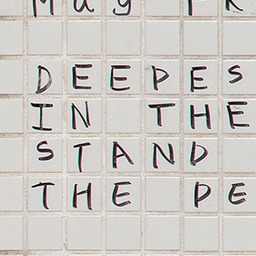 DEEPES
IN THE
STAND
THE PE